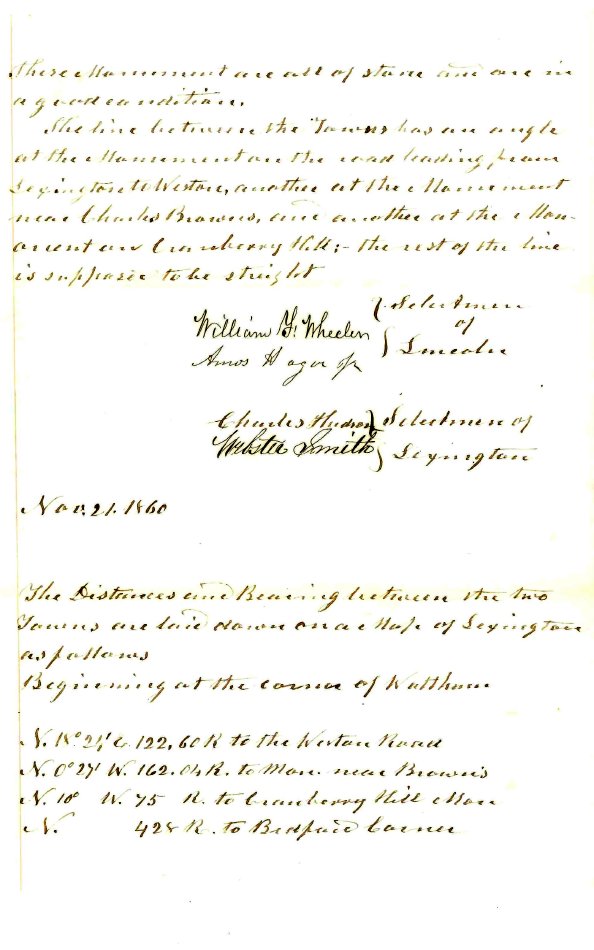 These Monument are all of stone and are in
a good condition.
The line between the Towns has an angle
at the Monument on the road leading from
Lexington to Weston, another at the Monument
near Charles Browns, and another at the Mon-
ument on Cranberry Hill; - the rest of the line
is suppose to be straight
William F. Wheeler } Selectmen
of
Amos Hagar Jr } Lincoln
Charles Hudson } Selectmen of
Webster Smith } Lexington
Nov. 21. 1860
The Distances and Bearing between the two
Towns are laid down on a Map of Lexington
as follows
Beginning at the corner of Waltham
N. 18° 24' E. 122,60 R to the Weston Road
N. 0° 27' W. 162.04 R. to Mon. near Brown's
N. 10° W. 75 R. to Cranberry Hill Mon
N. 428 R. to Bedford Corner